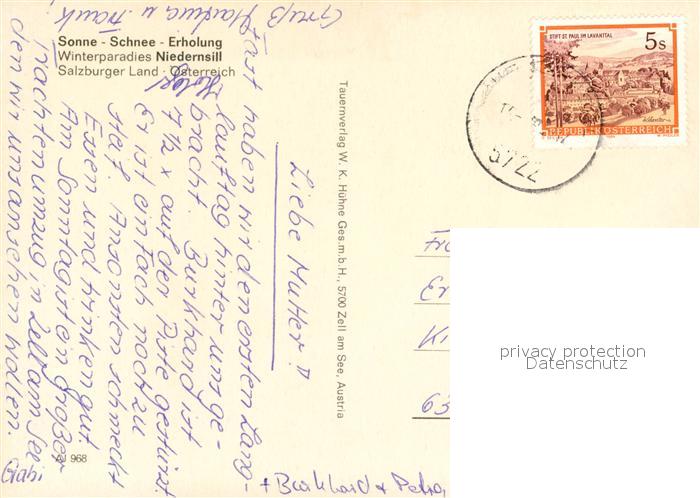 Sonne - Schnee - Erholung
Winterparadies Niedernsill
Salzburger Land · Österreich
Liebe Mutter!
Fast haben wir den ersten Lang-
lauftag hinter uns ge-
bracht. Burkhard ist
7 ½ x auf der Piste gestürzt
Er ist einfach noch zu
steif. Ansonsten schmeckt
Essen und trinken gut.
Am Sonntag ist ein großer
Trachtenumzug in Zell am See
den wir uns ansehen wollen.
Gruß
u. Frank
Gabi
+ Burkhard + Petra
AJ 968
Tauernverlag W. K. Hühne Ges.m.b.H., 5700 Zell am See, Austria
STIFT ST. PAUL IM LAVANTTAL
5s
REPUBLIK ÖSTERREICH
5722
63
privacy protection
Datenschutz